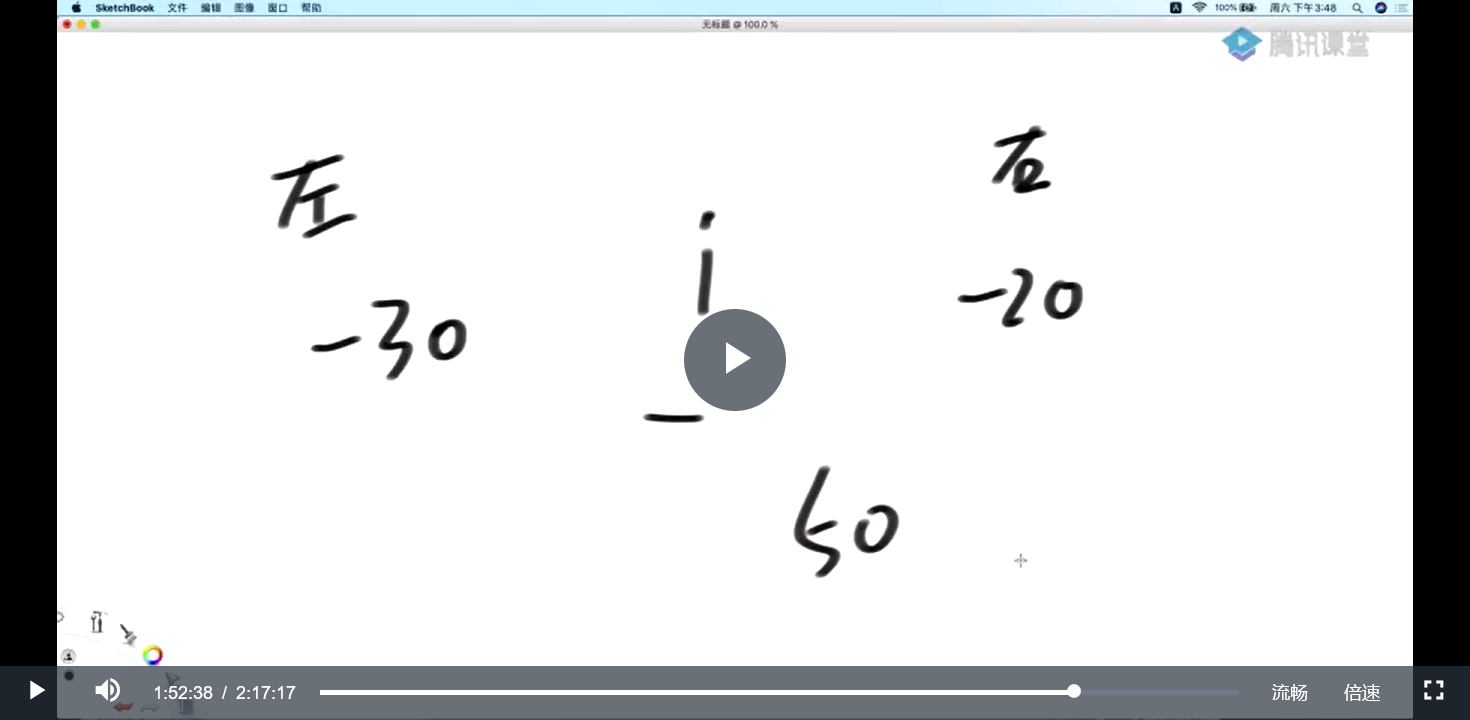 SketchBook 文件 编辑 图像 窗口 帮助
A 100% 周六 下午3:48
无标题 @ 100.0 %
腾讯课堂
左
右
i
-20
-30
50
1:52:38 / 2:17:17 流畅 倍速